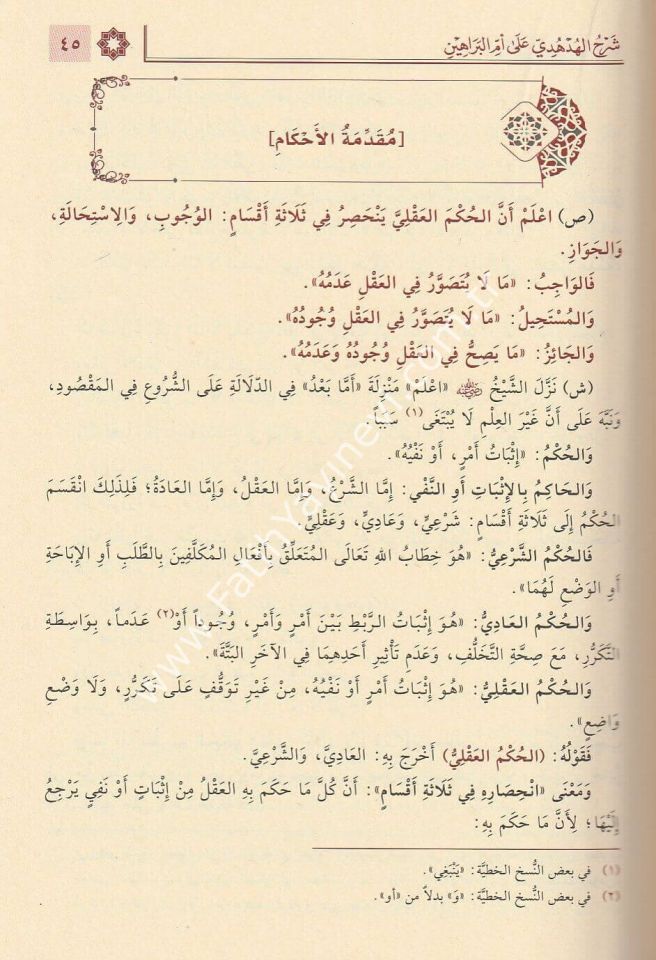 شَرْحُ الهُدْهُدِيِّ عَلَى أُمِّ البَرَاهِينِ
٤٥
[مُقَدِّمَةُ الأَحْكَامِ]
(ص) اعْلَمْ أَنَّ الحُكْمَ العَقْلِيَّ يَنْحَصِرُ فِي ثَلَاثَةِ أَقْسَامٍ: الوُجُوبِ، وَالِاسْتِحَالَةِ،
وَالجَوَازِ.
فَالوَاجِبُ: «مَا لَا يُتَصَوَّرُ فِي العَقْلِ عَدَمُهُ».
وَالمُسْتَحِيلُ: «مَا لَا يُتَصَوَّرُ فِي العَقْلِ وُجُودُهُ».
وَالجَائِزُ: «مَا يَصِحُّ فِي العَقْلِ وُجُودُهُ وَعَدَمُهُ».
(ش) نَزَّلَ الشَّيْخُ ﵁ «اعْلَمْ» مَنْزِلَةَ «أَمَّا بَعْدُ» فِي الدِّلَالَةِ عَلَى الشُّرُوعِ فِي المَقْصُودِ،
وَنَبَّهَ عَلَى أَنَّ غَيْرَ العِلْمِ لَا يُبْتَغَى(١) سَبَباً.
وَالحُكْمُ: «إِثْبَاتُ أَمْرٍ، أَوْ نَفْيُهُ».
وَالحَاكِمُ بِالإِثْبَاتِ أَوِ النَّفْيِ: إِمَّا الشَّرْعُ، وَإِمَّا العَقْلُ، وَإِمَّا العَادَةُ؛ فَلِذَلِكَ انْقَسَمَ
الحُكْمُ إِلَى ثَلَاثَةِ أَقْسَامٍ: شَرْعِيٍّ، وَعَادِيٍّ، وَعَقْلِيٍّ.
فَالحُكْمُ الشَّرْعِيُّ: «هُوَ خِطَابُ اللهِ تَعَالَى المُتَعَلِّقُ بِأَفْعَالِ المُكَلَّفِينَ بِالطَّلَبِ أَوِ الإِبَاحَةِ
أَوِ الوَضْعِ لَهُمَا».
وَالحُكْمُ العَادِيُّ: «هُوَ إِثْبَاتُ الرَّبْطِ بَيْنَ أَمْرٍ وَأَمْرٍ، وُجُوداً أَوْ(٢) عَدَماً، بِوَاسِطَةِ
التَّكَرُّرِ، مَعَ صِحَّةِ التَّخَلُّفِ، وَعَدَمِ تَأْثِيرِ أَحَدِهِمَا فِي الآخَرِ البَتَّةَ».
وَالحُكْمُ العَقْلِيُّ: «هُوَ إِثْبَاتُ أَمْرٍ أَوْ نَفْيُهُ، مِنْ غَيْرِ تَوَقُّفٍ عَلَى تَكَرُّرٍ، وَلَا وَضْعِ
وَاضِعٍ».
فَقَوْلُهُ: (الحُكْمُ العَقْلِيُّ) أَخْرَجَ بِهِ: العَادِيَّ، وَالشَّرْعِيَّ.
وَمَعْنَى «انْحِصَارِهِ فِي ثَلَاثَةِ أَقْسَامٍ»: أَنَّ كُلَّ مَا حَكَمَ بِهِ العَقْلُ مِنْ إِثْبَاتٍ أَوْ نَفْيٍ يَرْجِعُ
إِلَيْهَا؛ لِأَنَّ مَا حَكَمَ بِهِ:
(١) في بعض النُّسخ الخطيَّة: «يَنْبَغِي».
(٢) في بعض النُّسخ الخطيَّة: «وَ» بدلاً من «أو».
www.FatihYayinevi.com.tr